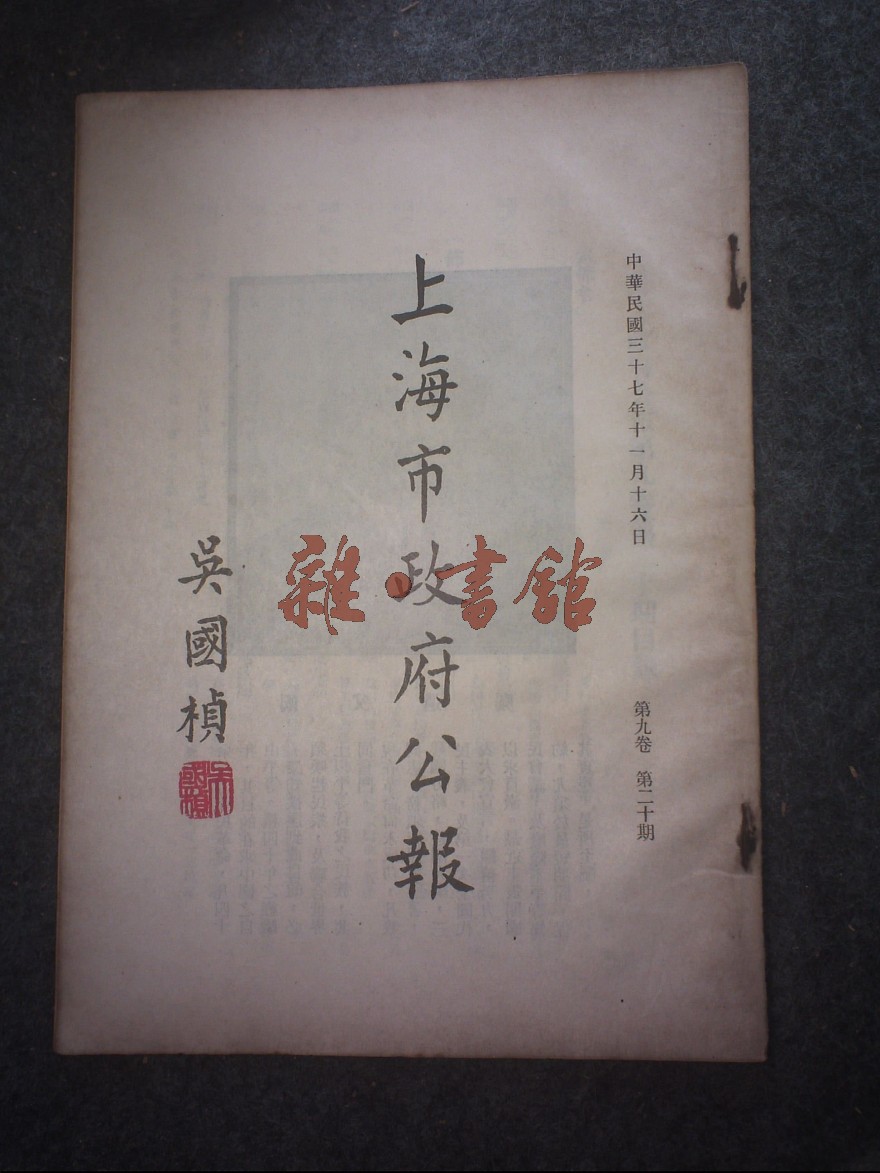 中華民國三十七年十一月十六日
第九卷 第二十期
上海市政府公報
吳國楨
雜·書館